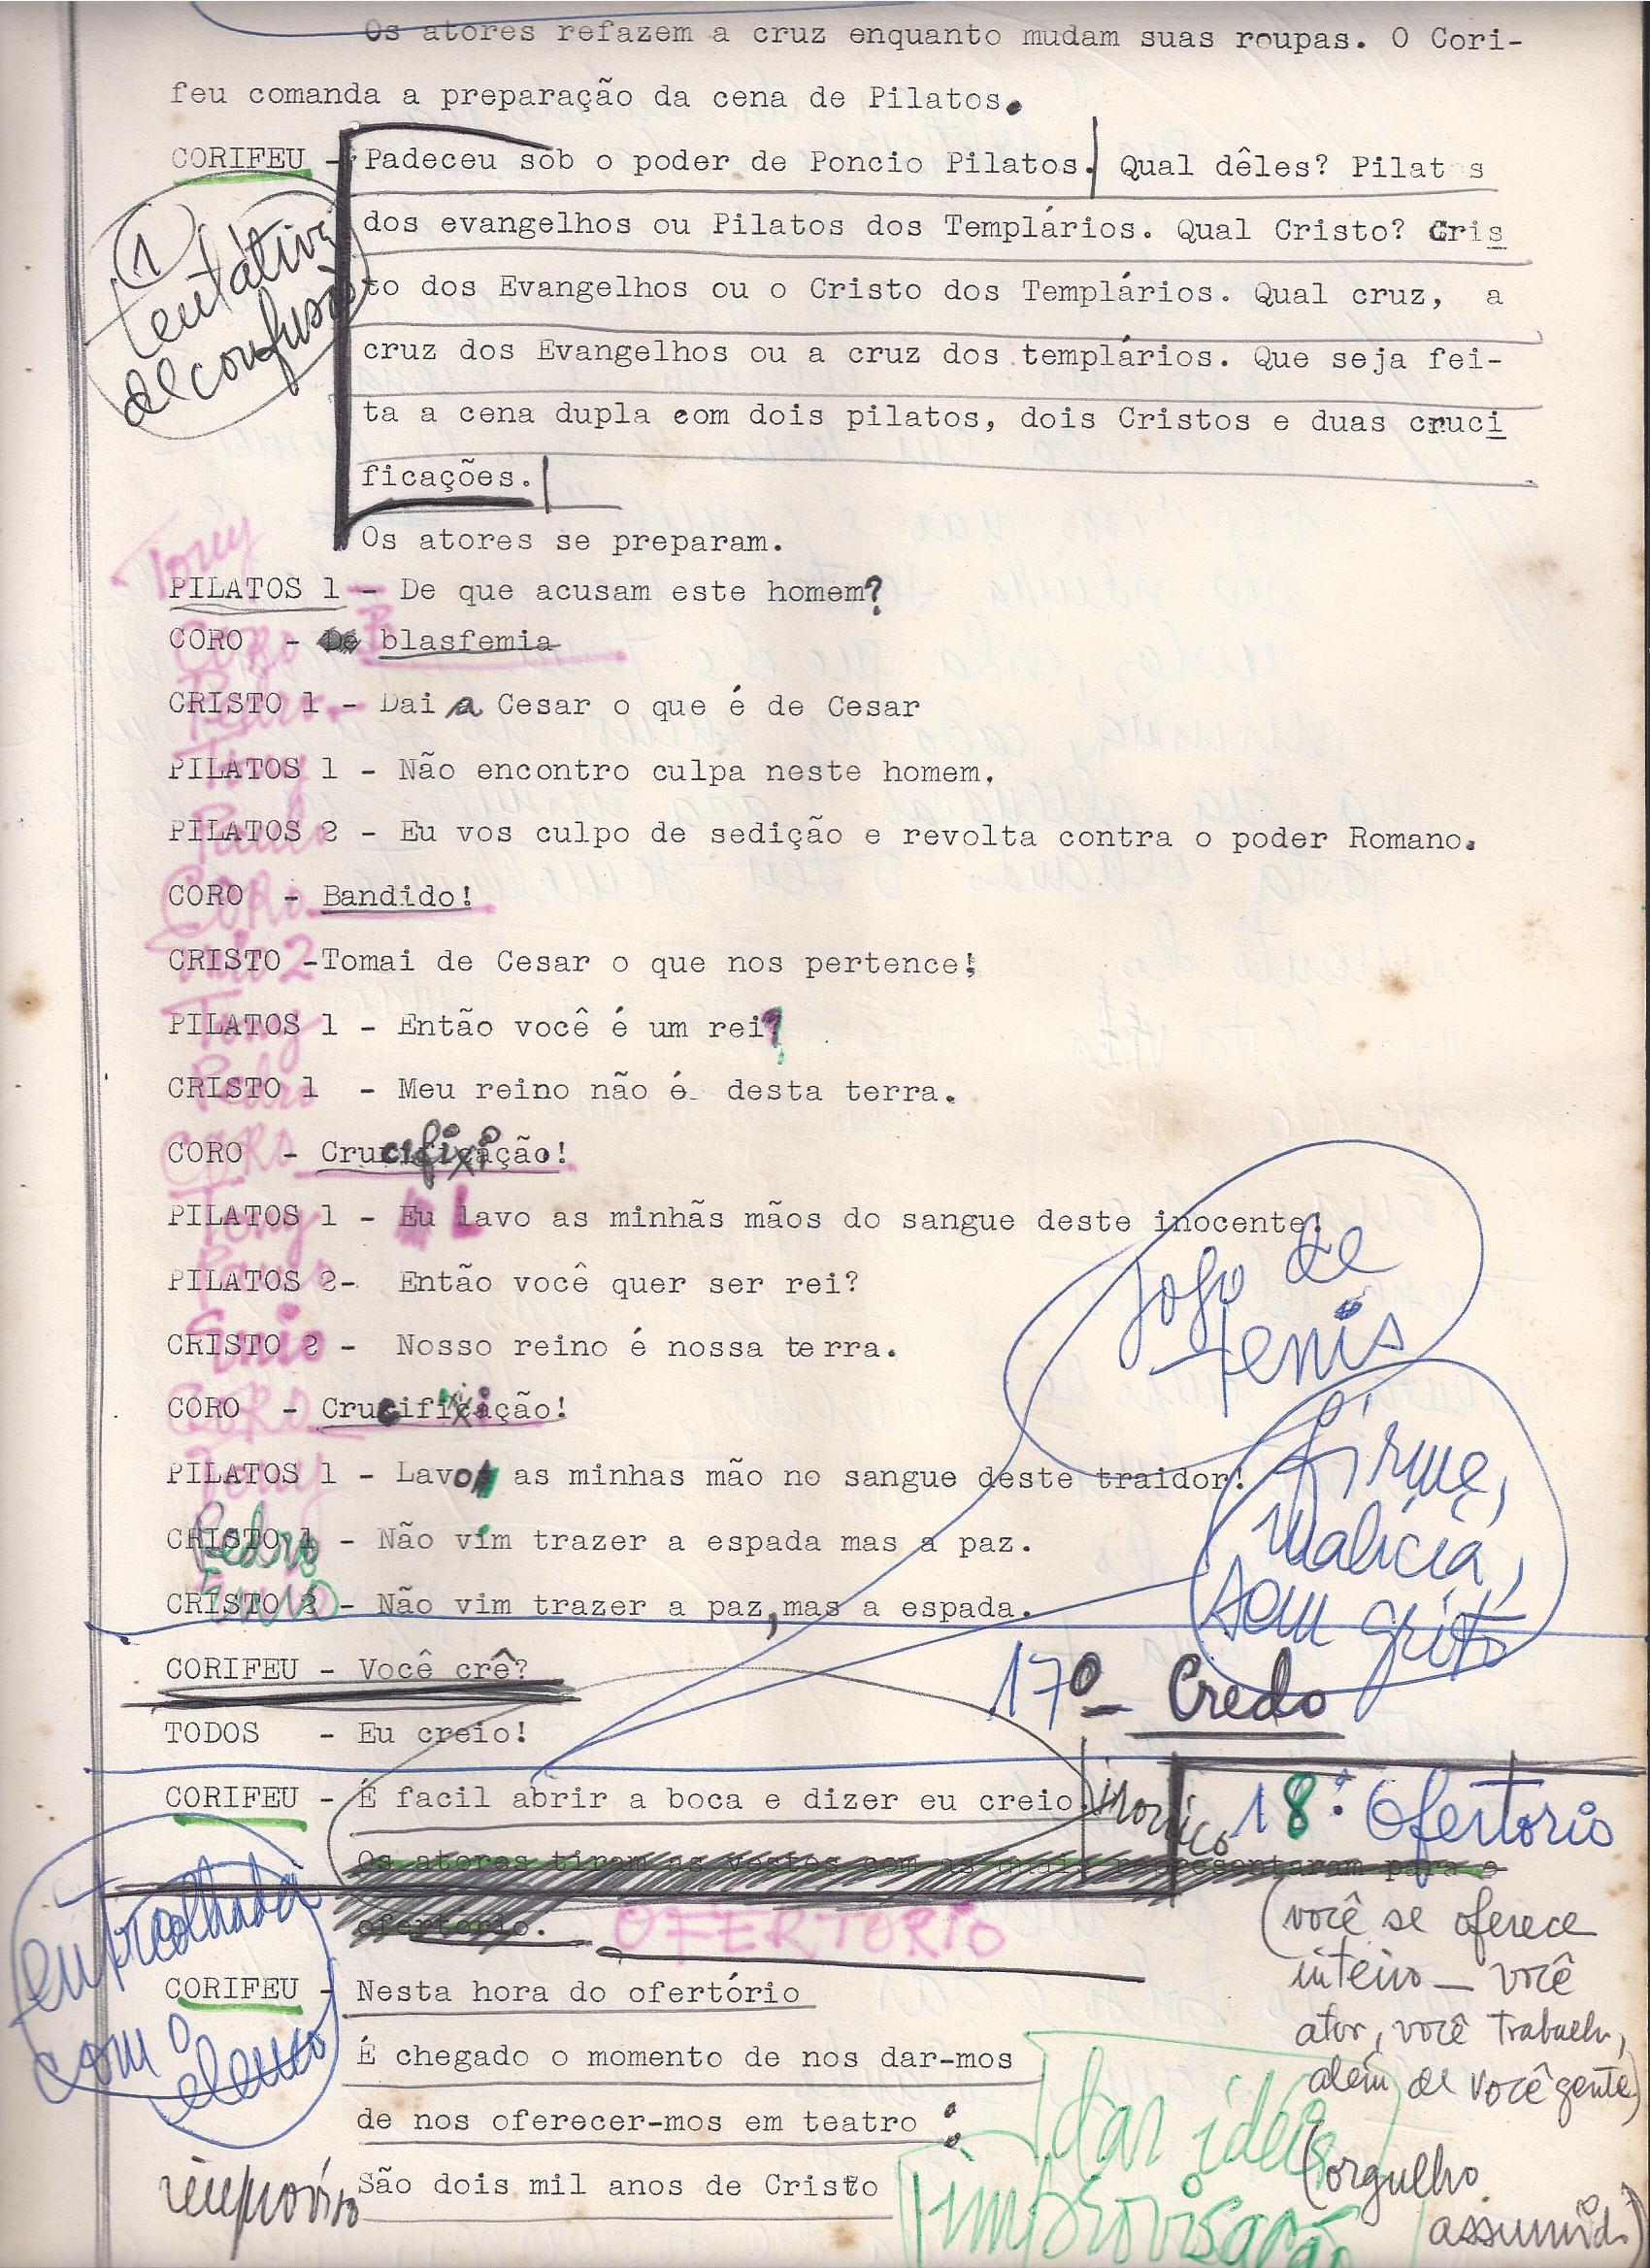 Os atores refazem a cruz enquanto mudam suas roupas. O Cori-
feu comanda a preparação da cena de Pilatos.
CORIFEU - Padeceu sob o poder de Poncio Pilatos. Qual dêles? Pilat s
dos evangelhos ou Pilatos dos Templários. Qual Cristo? Cris
to dos Evangelhos ou o Cristo dos Templários. Qual cruz, a
cruz dos Evangelhos ou a cruz dos templários. Que seja fei-
ta a cena dupla com dois pilatos, dois Cristos e duas cruci
ficações.
1
tentativa
de confusão
Os atores se preparam.
Tony
PILATOS 1 - De que acusam este homem?
CORO - De blasfemia
CORO
CRISTO 1 - Dai a Cesar o que é de Cesar
Pedro
PILATOS 1 - Não encontro culpa neste homem.
Tony
PILATOS 2 - Eu vos culpo de sedição e revolta contra o poder Romano.
Paulo
CORO - Bandido!
CORO
CRISTO -Tomai de Cesar o que nos pertence!
Enio 2
PILATOS 1 - Então você é um rei?
Tony
CRISTO 1 - Meu reino não é desta terra.
Pedro
CORO - Crucifixação!
CORO
PILATOS 1 - Eu lavo as minhãs mãos do sangue deste inocente!
Tony
PILATOS 2- Então você quer ser rei?
Paulo
CRISTO 2 - Nosso reino é nossa terra.
Enio
CORO - Crucifixação!
CORO
jogo de
tenis
PILATOS 1 - Lavo as minhas mão no sangue deste traidor!
Tony
CRISTO 1 - Não vim trazer a espada mas a paz.
Pedro
CRISTO 2 - Não vim trazer a paz,mas a espada.
Enio
firme,
malicia,
sem grito
CORIFEU - Você crê?
17º - Credo
TODOS - Eu creio!
CORIFEU - É facil abrir a boca e dizer eu creio.
irônico
18º Ofertorio
Os atores tiram as vestes com as quais representaram para o
ofertorio. OFERTORIO
(você se oferece
inteiro — você
ator, você trabalh,
além de você gente)
com o
elenco
CORIFEU - Nesta hora do ofertório
É chegado o momento de nos dar-mos
de nos oferecer-mos em teatro :
São dois mil anos de Cristo
improviso
dar ideia
improvisação
(orgulho
assumido)